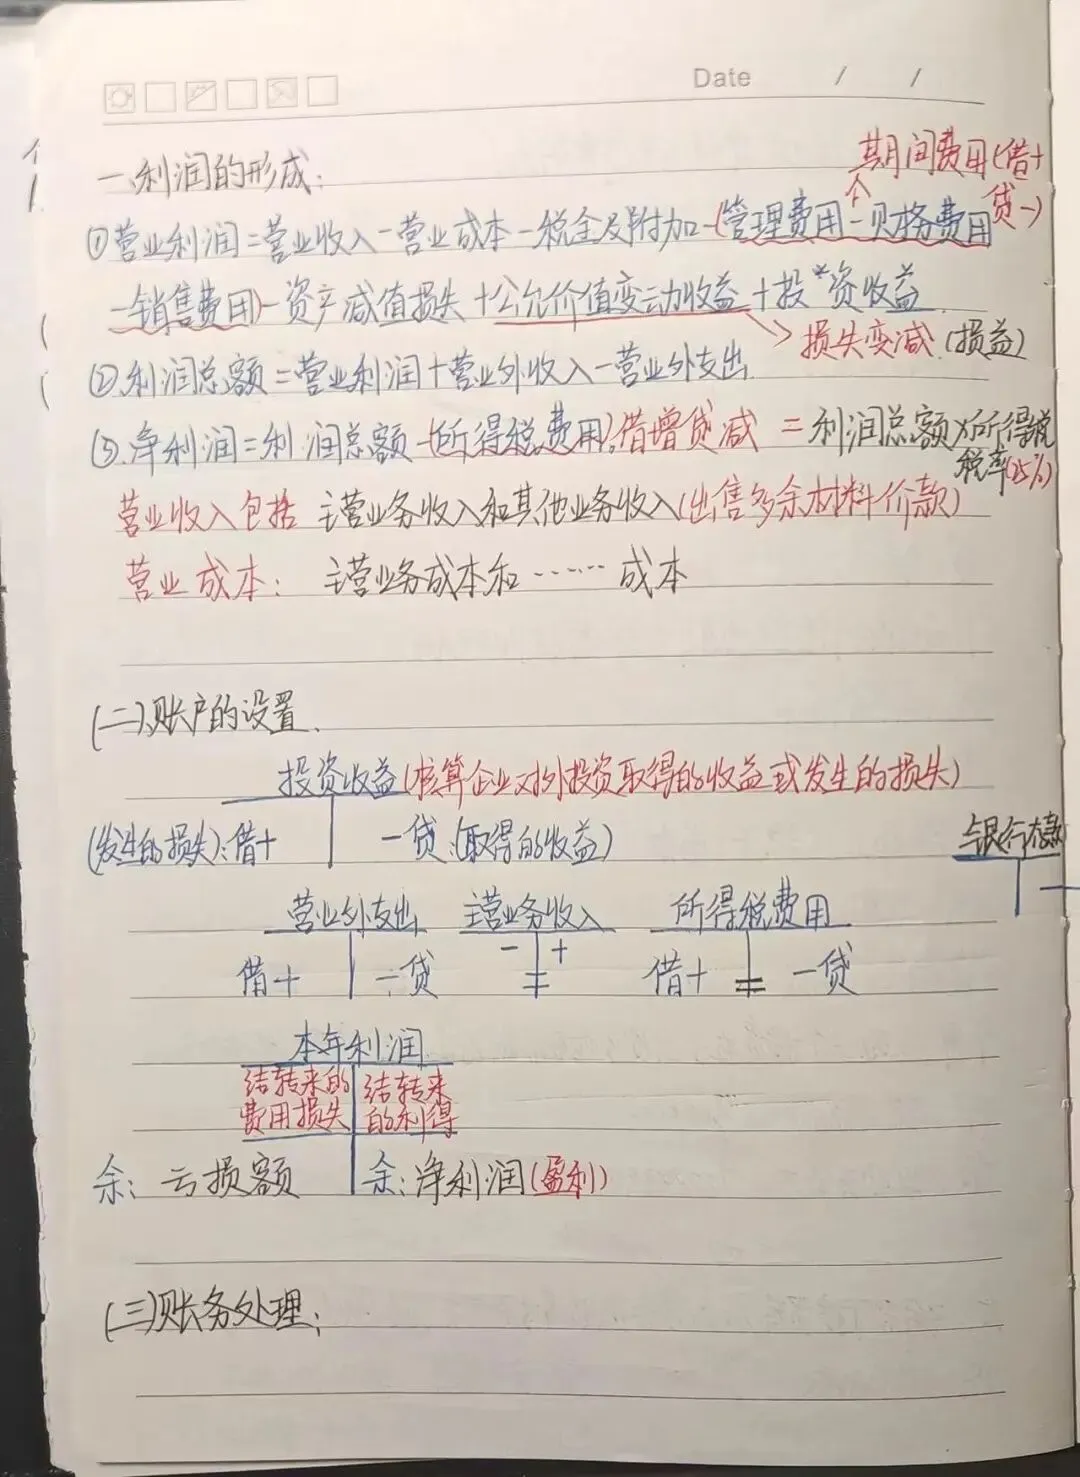 Date / /
期间费用(借+
贷-)
一、利润的形成:
①营业利润=营业收入-营业成本-税金及附加-(管理费用-财务费用
-销售费用)-资产减值损失+公允价值变动收益+投资收益
损失变减.(损益)
②.利润总额=营业利润+营业外收入-营业外支出
③.净利润=利润总额-(所得税费用).借增贷减 =利润总额×所得税
税率(25%)
营业收入包括 主营业务收入和其他业务收入(出售多余材料价款)
营业成本: 主营业务成本和……成本
(二)、账户的设置.
投资收益(核算企业对外投资取得的收益或发生的损失)
(发生的损失):借+ -贷:(取得的收益)
银行存款
-
营业外支出 主营业务收入 所得税费用
- +
借+ -贷 借+ -贷
本年利润
结转来的 结转来
费用损失 的利得
余:亏损额 余:净利润(盈利)
(三)账务处理: